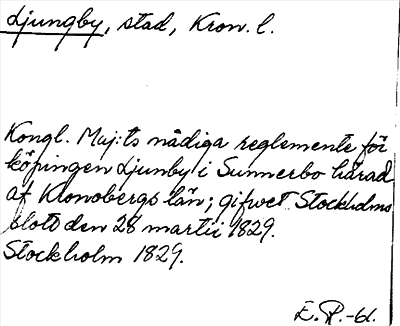 Ljungby, stad, Kron. l.
Kongl. Maj:ts nådiga reglemente för
köpingen Ljunby i Sunnerbo härad
af Kronobergs län; gifwet Stockholms
slott den 28 martii 1829.
Stockholm 1829.
E.R.-61.